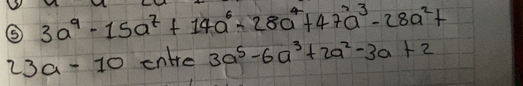 ⑤ 3a⁹ - 15a⁷ + 14a⁶ - 28a⁴ + 47a³ - 28a² +
23a - 10 entre 3a⁵ - 6a³ + 2a² - 3a + 2